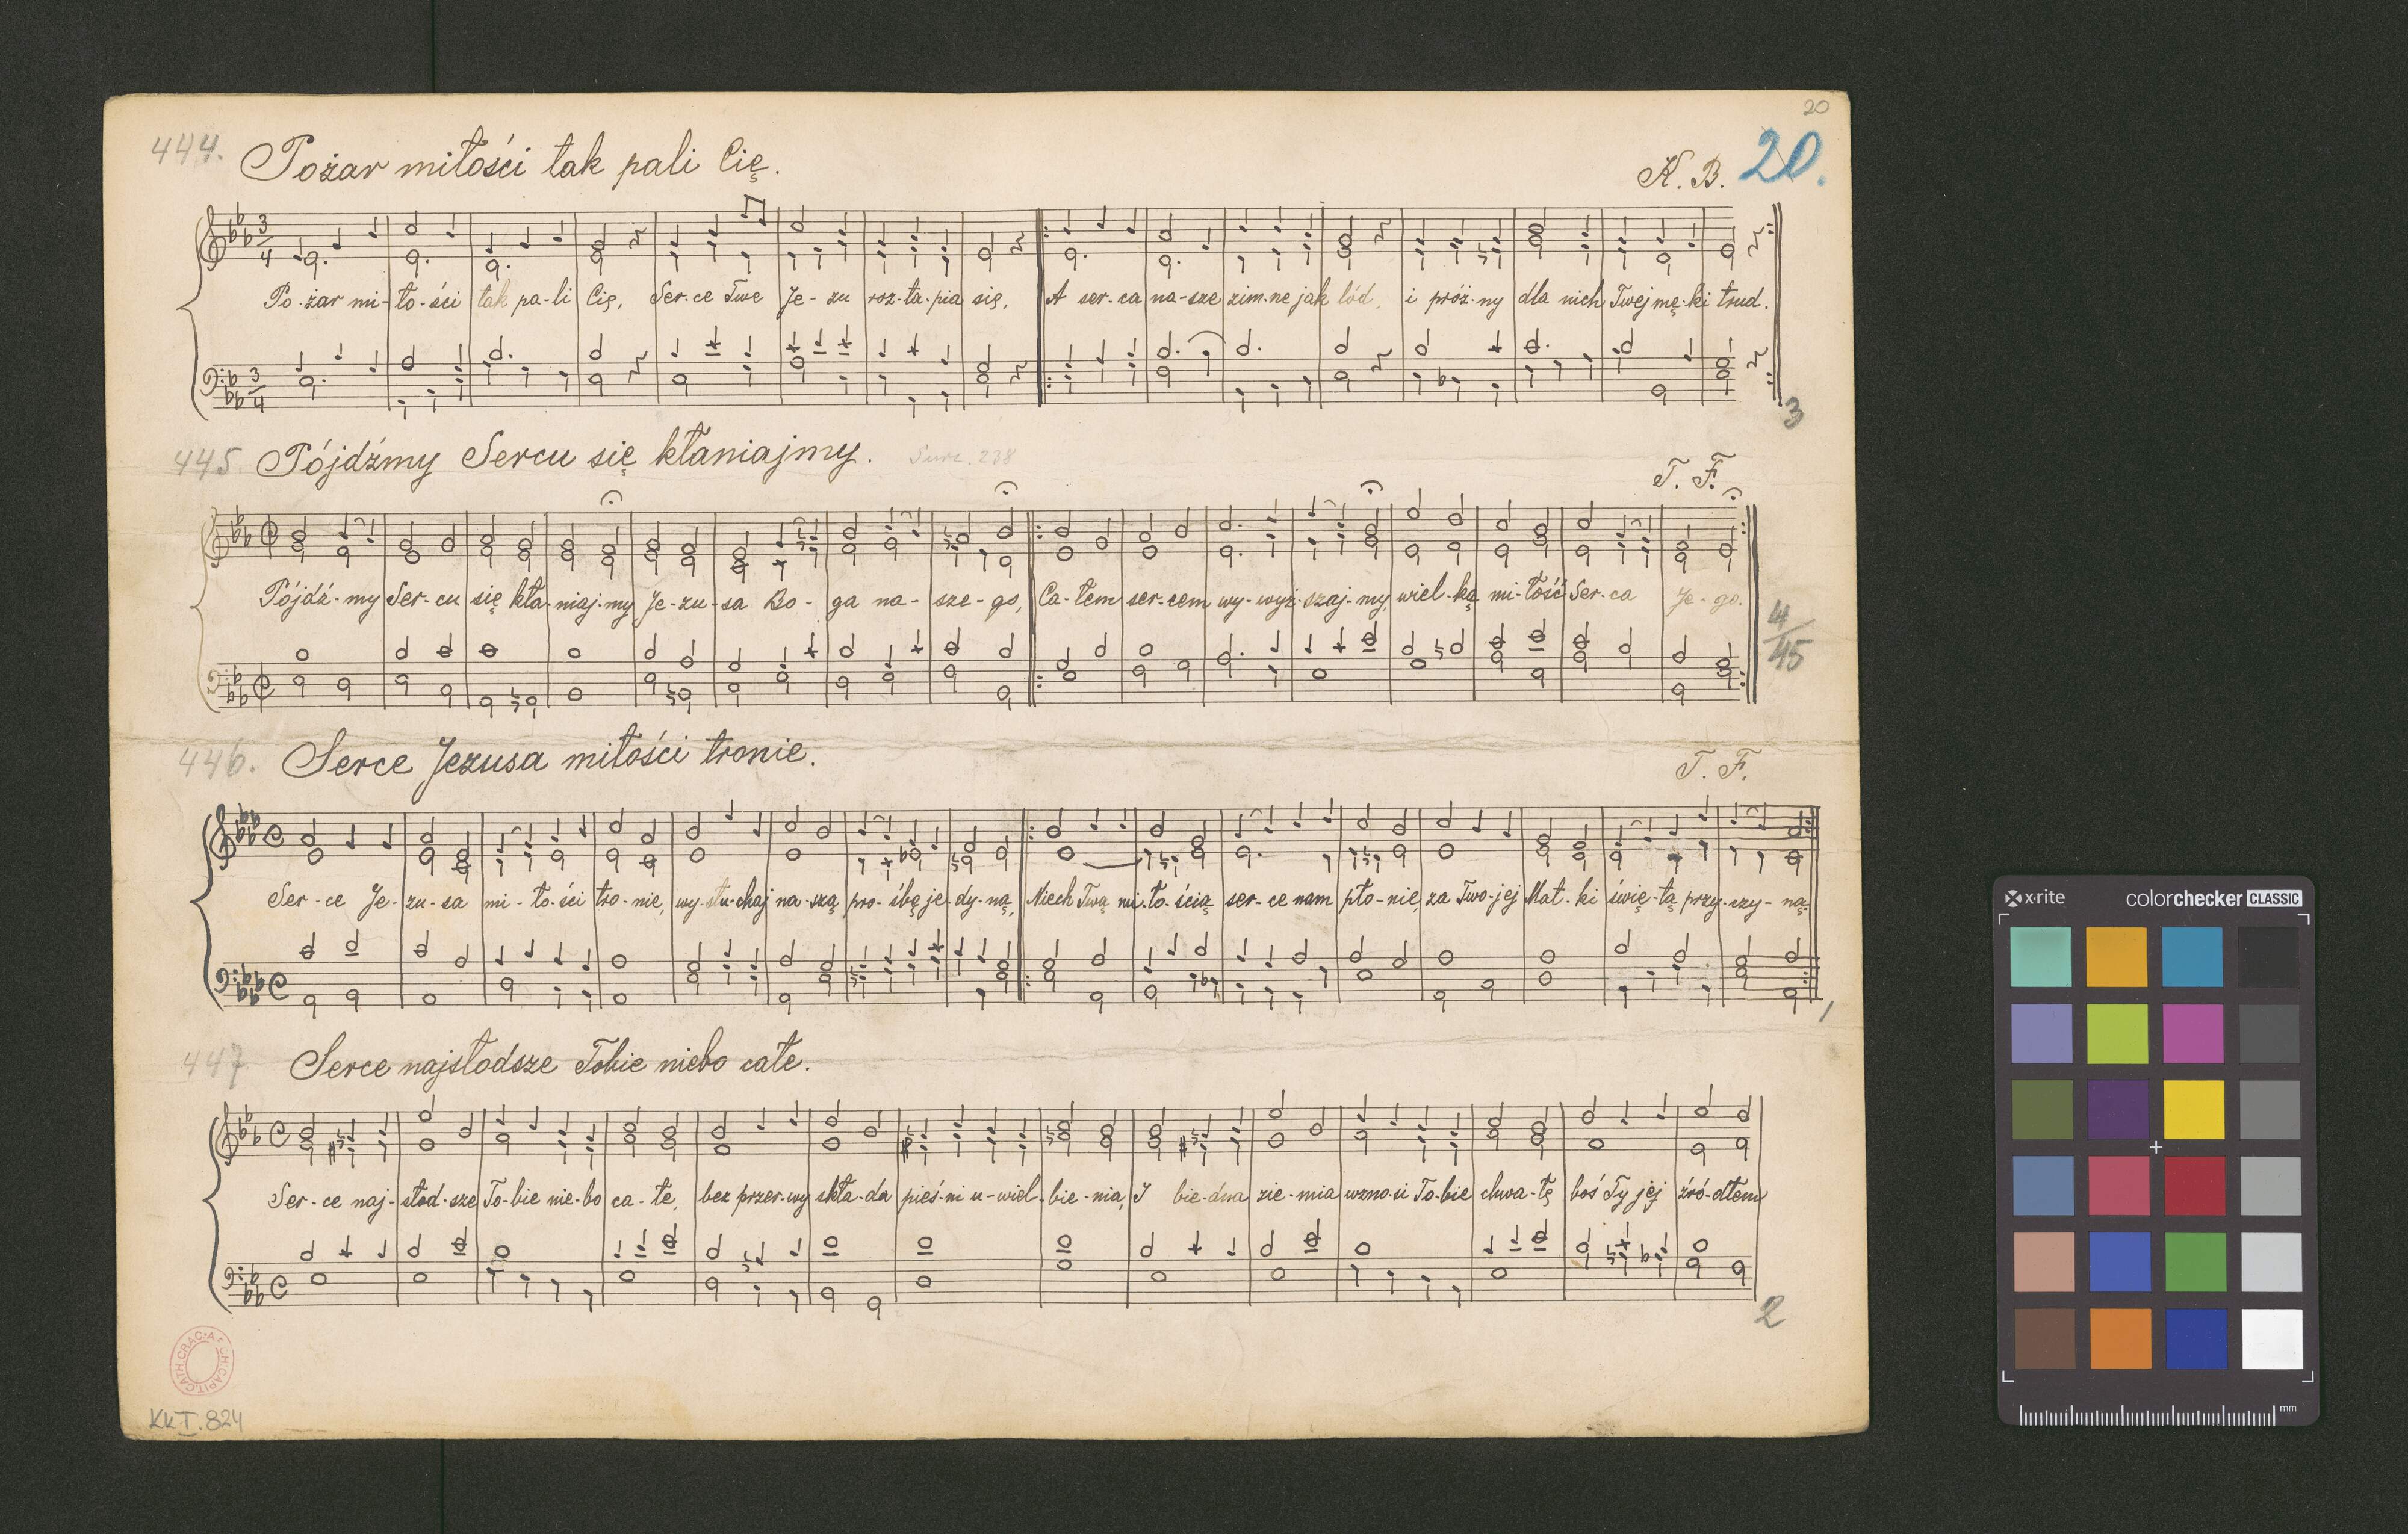 20
444. Pożar miłości tak pali Cię.
K. B. 20.
3/4
Po-żar mi-ło-ści tak pa-li Cię, Ser-ce Twe Je-zu roz-ta-pia się, A ser-ca na-sze zim-ne jak lód, i próż-ny dla nich Twej mę-ki trud.
3/4
3
445 Pójdźmy Sercu się kłaniajmy.
T. F.
Pójdź-my Ser-cu się kła-niaj-my Je-zu-sa Bo-ga na-sze-go, Ca-łem ser-cem wy-wyż-szaj-my, wiel-ką mi-łość Ser-ca Je-go.
4/45
446. Serce Jezusa miłości tronie.
T. F.
Ser-ce Je-zu-sa mi-ło-ści tro-nie, wy-słu-chaj na-szą pro-śbę je-dy-ną, Niech Twą mi-ło-ścią ser-ce nam pło-nie, za Two-jej Mat-ki świę-tą przy-czy-ną.
1
447 Serce najsłodsze Tobie niebo całe.
Ser-ce naj-słod-sze To-bie nie-bo ca-łe, bez przer-wy skła-da pieś-ni u-wiel-bie-nia, I bie-dna zie-mia wzno-si To-bie chwa-łę boś Ty jej źró-dłem
2
ARCH.CAPIT.CATH.CRAC.
KkI.824
x-rite colorchecker CLASSIC
mm